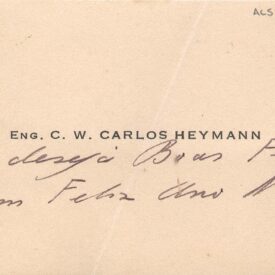 ALS
ENG. C. W. CARLOS HEYMANN
deseja Boas F
m Feliz Ano N